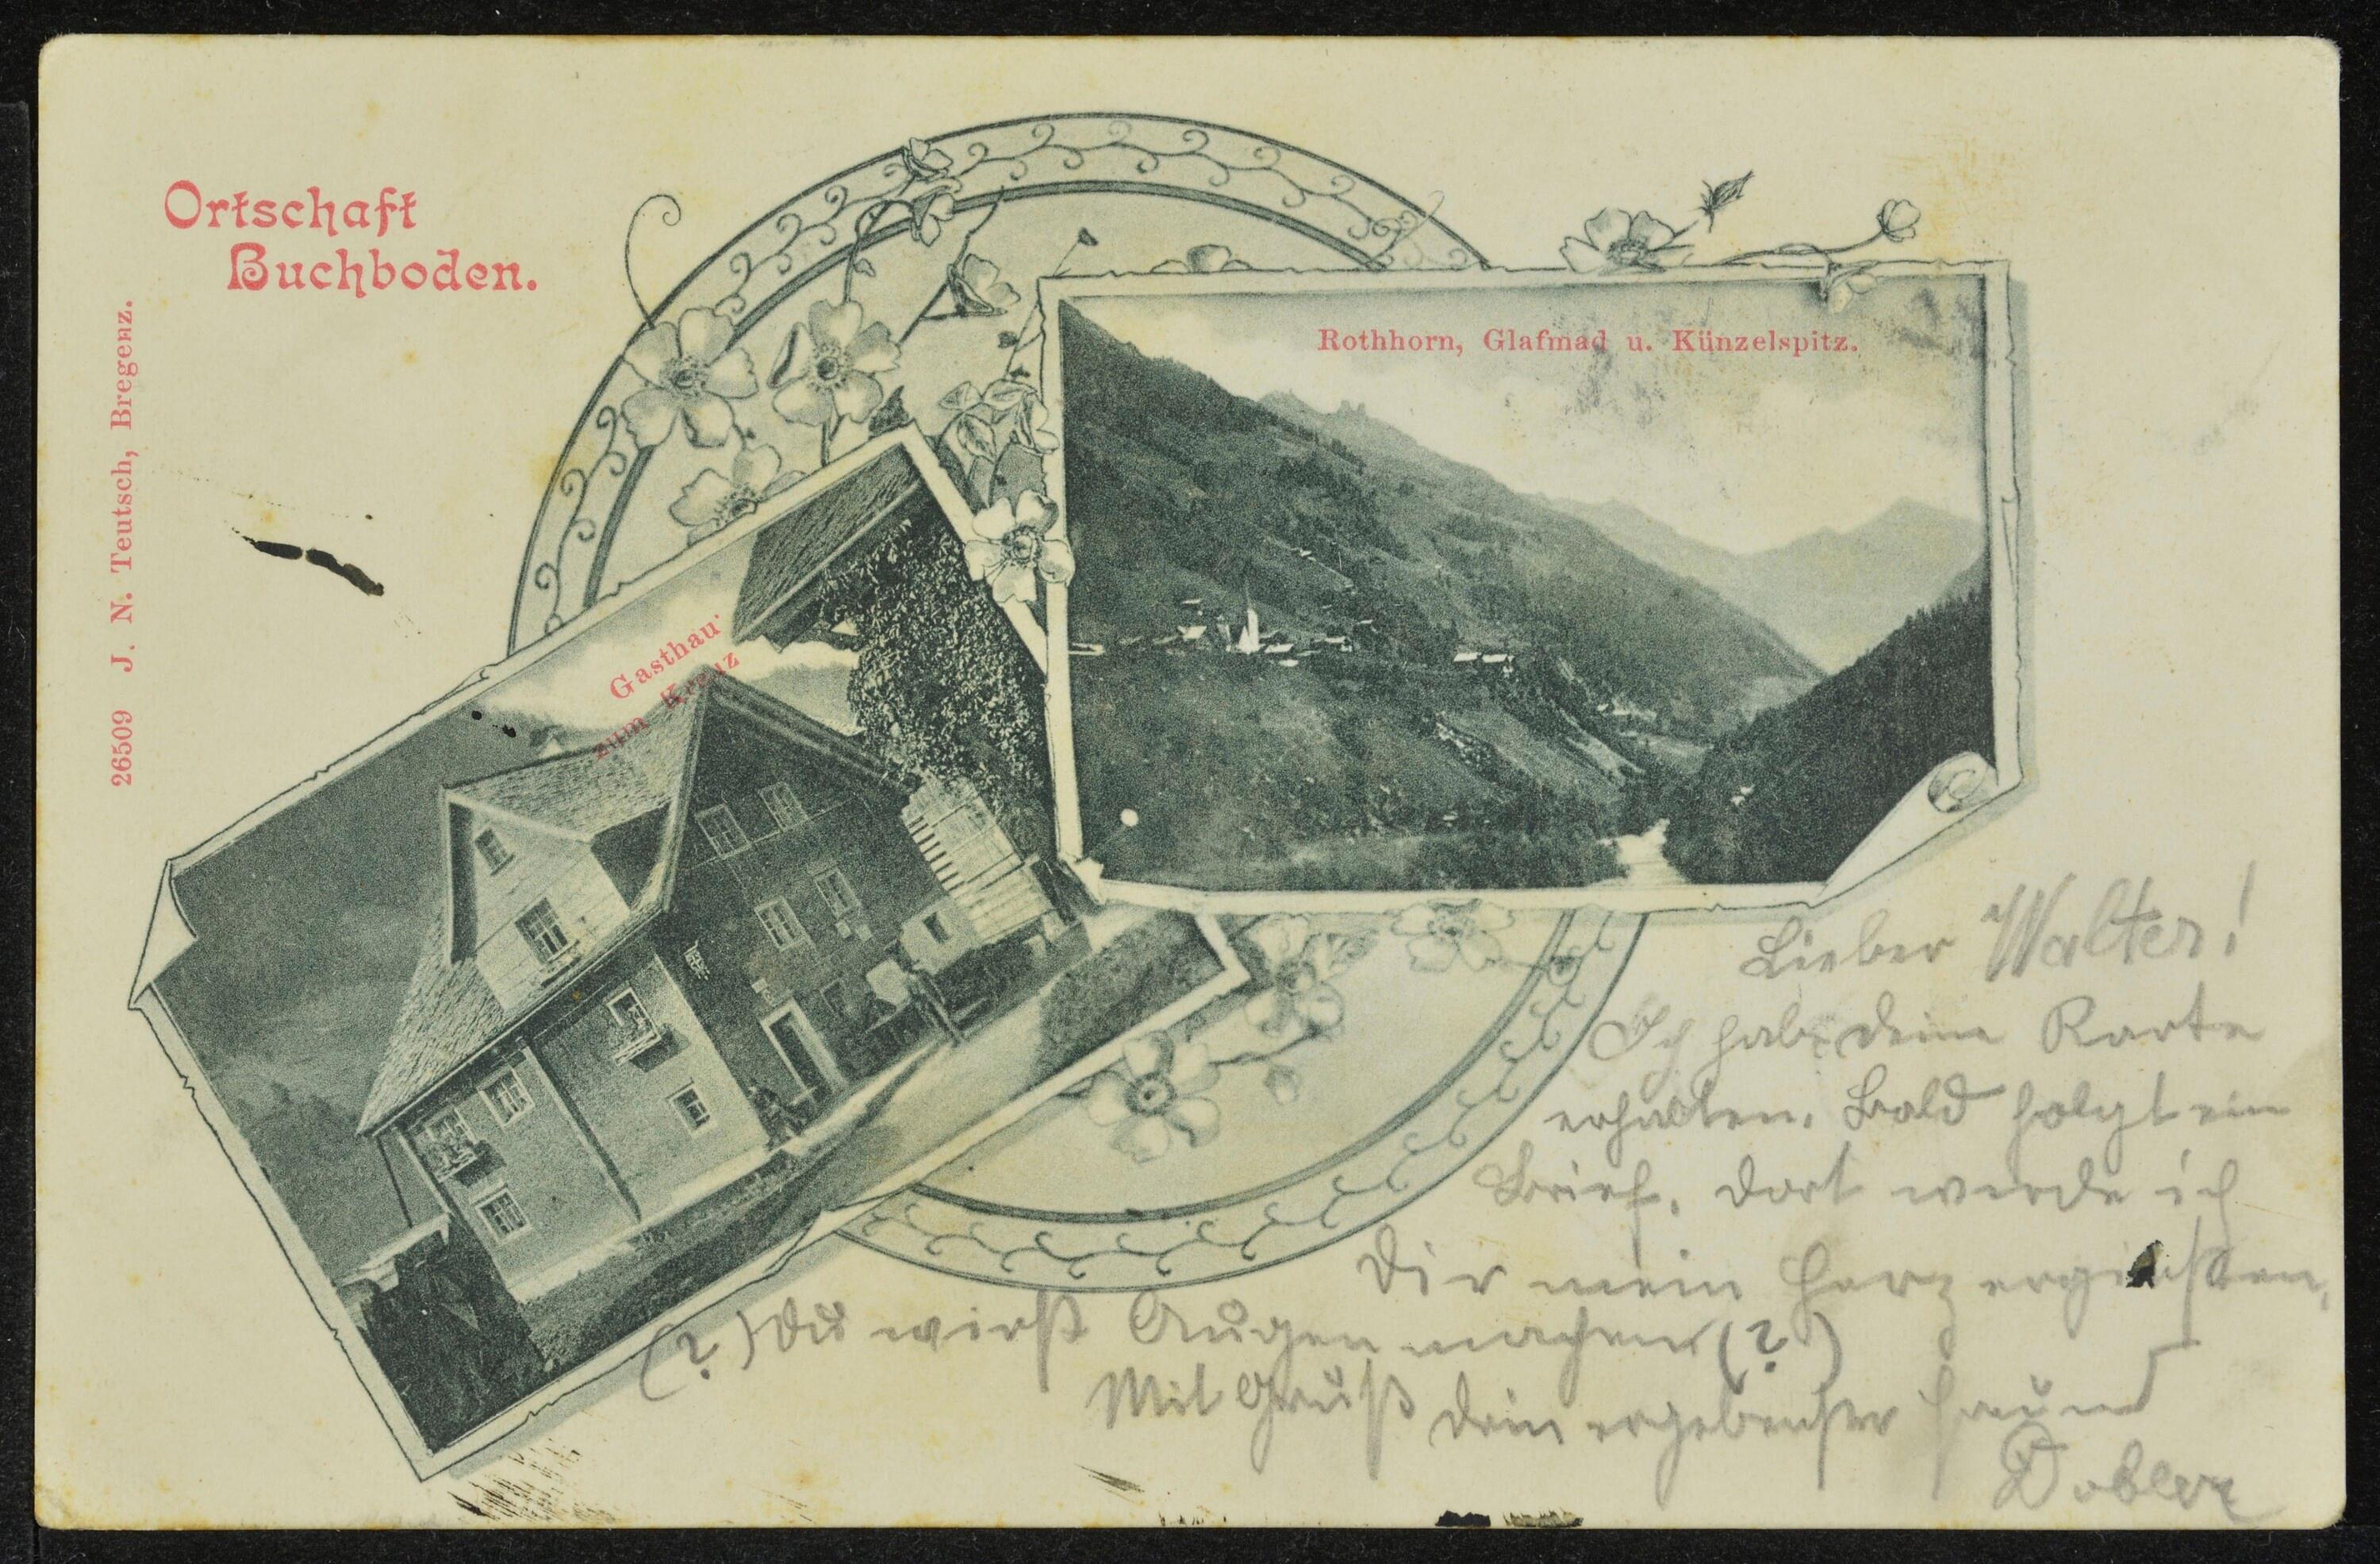 Ortschaft
Buchboden.
26509 J. N. Teutsch, Bregenz.
Rothhorn, Glafmad u. Künzelspitz.
Gasthau
zum Kreuz
Lieber Walter!
Ich habe deine Karte
erhalten. Bald folgt ein
Brief. Dort werde ich
Dir mein Herz ergießen,
(?) Du wirst Augen machen (?)
Mit Gruß dein ergebenster Freund
Dobler